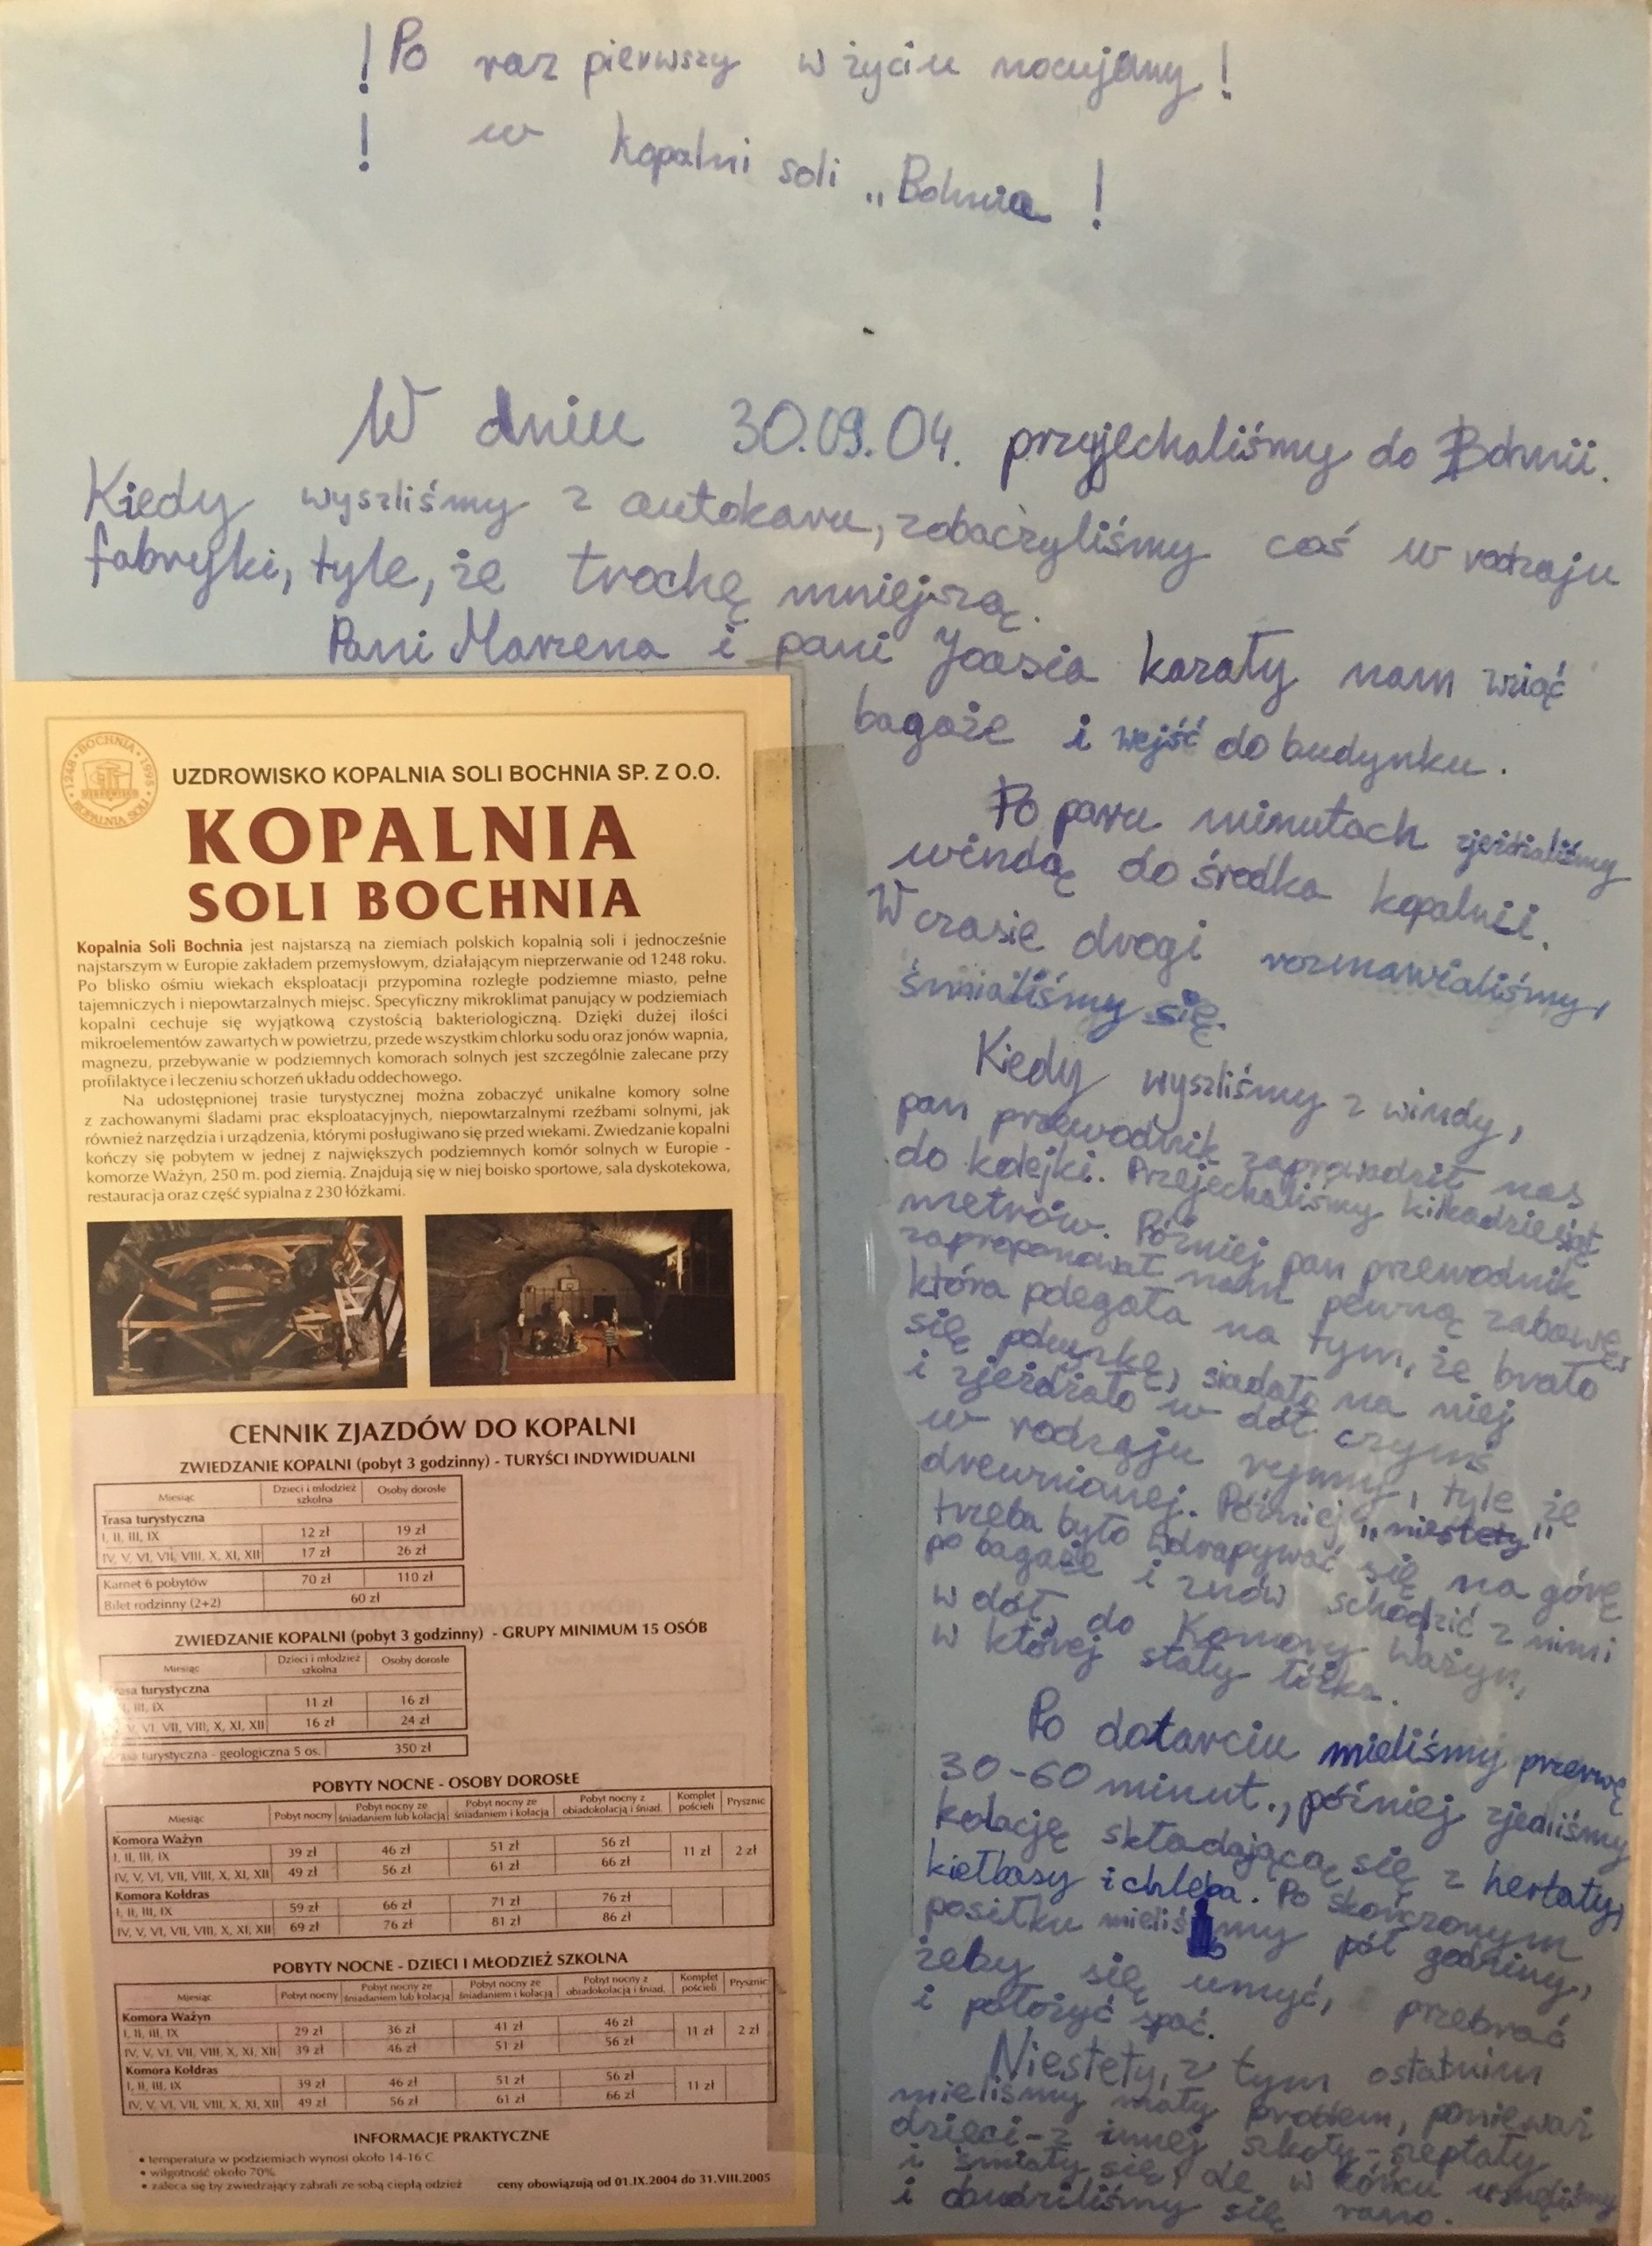 ! Po raz pierwszy w życiu nocujemy !
! w kopalni soli „Bohnia !
W dniu 30.09.04. przyjechaliśmy do Bohnii.
Kiedy wyszliśmy z autokaru, zobaczyliśmy coś w rodzaju
fabryki, tyle, że trochę mniejszą.
Pani Marzena i pani Joasia kazały nam wziąć
bagaże i wejść do budynku.
Po paru minutach zjeżdżaliśmy
windą do środka kopalnii.
W czasie drogi rozmawialiśmy,
śmialiśmy się.
Kiedy wyszliśmy z windy,
pan przewodnik zaprowadził nas
do kolejki. Przejechaliśmy kilkadziesiąt
metrów. Później pan przewodnik
zaproponował nam pewną zabawę,
która polegała na tym, że brało
się poduszkę, siadało na niej
i zjeżdżało w dół czymś
w rodzaju rynny, tyle że
drewnianej. Później „niestety"
trzeba było wdrapywać się na górę
po bagaże i znów schodzić z nimi
w dół, do Komory Ważyn,
w której stały łóżka.
Po dotarciu mieliśmy przerwę
30-60 minut., później zjedliśmy
kolację składającą się z herbaty,
kiełbasy i chleba. Po skończonym
posiłku mieliśmy pół godziny,
żeby się umyć, przebrać
i położyć spać.
Niestety, z tym ostatnim
mieliśmy mały problem, ponieważ
dzieci-z innej szkoły-szeptały
i śmiały się, ale w końcu usnęliśmy
i obudziliśmy się rano.
• BOCHNIA •
1248 1995
KOPALNIA SOLI
UZDROWISKO KOPALNIA SOLI BOCHNIA SP. Z O.O.
KOPALNIA
SOLI BOCHNIA
Kopalnia Soli Bochnia jest najstarszą na ziemiach polskich kopalnią soli i jednocześnie
najstarszym w Europie zakładem przemysłowym, działającym nieprzerwanie od 1248 roku.
Po blisko ośmiu wiekach eksploatacji przypomina rozległe podziemne miasto, pełne
tajemniczych i niepowtarzalnych miejsc. Specyficzny mikroklimat panujący w podziemiach
kopalni cechuje się wyjątkową czystością bakteriologiczną. Dzięki dużej ilości
mikroelementów zawartych w powietrzu, przede wszystkim chlorku sodu oraz jonów wapnia,
magnezu, przebywanie w podziemnych komorach solnych jest szczególnie zalecane przy
profilaktyce i leczeniu schorzeń układu oddechowego.
Na udostępnionej trasie turystycznej można zobaczyć unikalne komory solne
z zachowanymi śladami prac eksploatacyjnych, niepowtarzalnymi rzeźbami solnymi, jak
również narzędzia i urządzenia, którymi posługiwano się przed wiekami. Zwiedzanie kopalni
kończy się pobytem w jednej z największych podziemnych komór solnych w Europie -
komorze Ważyn, 250 m. pod ziemią. Znajdują się w niej boisko sportowe, sala dyskotekowa,
restauracja oraz część sypialna z 230 łóżkami.
CENNIK ZJAZDÓW DO KOPALNI
ZWIEDZANIE KOPALNI (pobyt 3 godzinny) - TURYŚCI INDYWIDUALNI
Miesiąc Dzieci i młodzież szkolna Osoby dorosłe
Trasa turystyczna
I, II, III, IX 12 zł 19 zł
IV, V, VI, VII, VIII, X, XI, XII 17 zł 26 zł
Karnet 6 pobytów 70 zł 110 zł
Bilet rodzinny (2+2) 60 zł
ZWIEDZANIE KOPALNI (pobyt 3 godzinny) - GRUPY MINIMUM 15 OSÓB
Miesiąc Dzieci i młodzież szkolna Osoby dorosłe
asa turystyczna
I, III, IX 11 zł 16 zł
V, VI, VII, VIII, X, XI, XII 16 zł 24 zł
asa turystyczna - geologiczna 5 os. 350 zł
POBYTY NOCNE - OSOBY DOROSŁE
Miesiąc Pobyt nocny Pobyt nocny ze śniadaniem lub kolacją Pobyt nocny ze śniadaniem i kolacją Pobyt nocny z obiadokolacją i śniad. Komplet pościeli Prysznic
Komora Ważyn
I, II, III, IX 39 zł 46 zł 51 zł 56 zł 11 zł 2 zł
IV, V, VI, VII, VIII, X, XI, XII 49 zł 56 zł 61 zł 66 zł
Komora Kołdras
I, II, III, IX 59 zł 66 zł 71 zł 76 zł
IV, V, VI, VII, VIII, X, XI, XII 69 zł 76 zł 81 zł 86 zł
POBYTY NOCNE - DZIECI I MŁODZIEŻ SZKOLNA
Miesiąc Pobyt nocny Pobyt nocny ze śniadaniem lub kolacją Pobyt nocny ze śniadaniem i kolacją Pobyt nocny z obiadokolacją i śniad. Komplet pościeli Prysznic
Komora Ważyn
I, II, III, IX 29 zł 36 zł 41 zł 46 zł 11 zł 2 zł
IV, V, VI, VII, VIII, X, XI, XII 39 zł 46 zł 51 zł 56 zł
Komora Kołdras
I, II, III, IX 39 zł 46 zł 51 zł 56 zł 11 zł
IV, V, VI, VII, VIII, X, XI, XII 49 zł 56 zł 61 zł 66 zł
INFORMACJE PRAKTYCZNE
• temperatura w podziemiach wynosi około 14-16 C
• wilgotność około 70%
• zaleca się by zwiedzający zabrali ze sobą ciepłą odzież ceny obowiązują od 01.IX.2004 do 31.VIII.2005